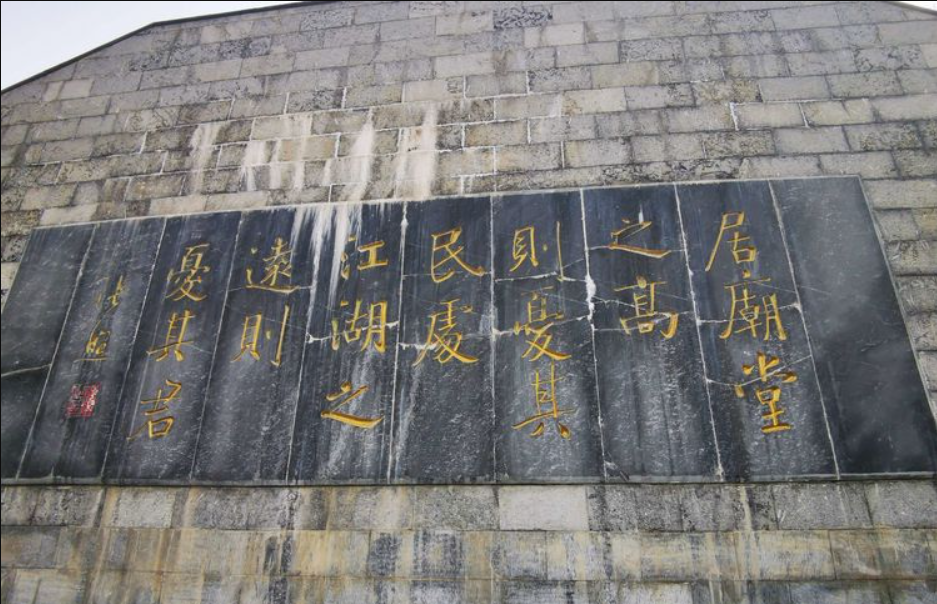 居廟堂
之高
則憂其
民處
江湖之
遠則
憂其君